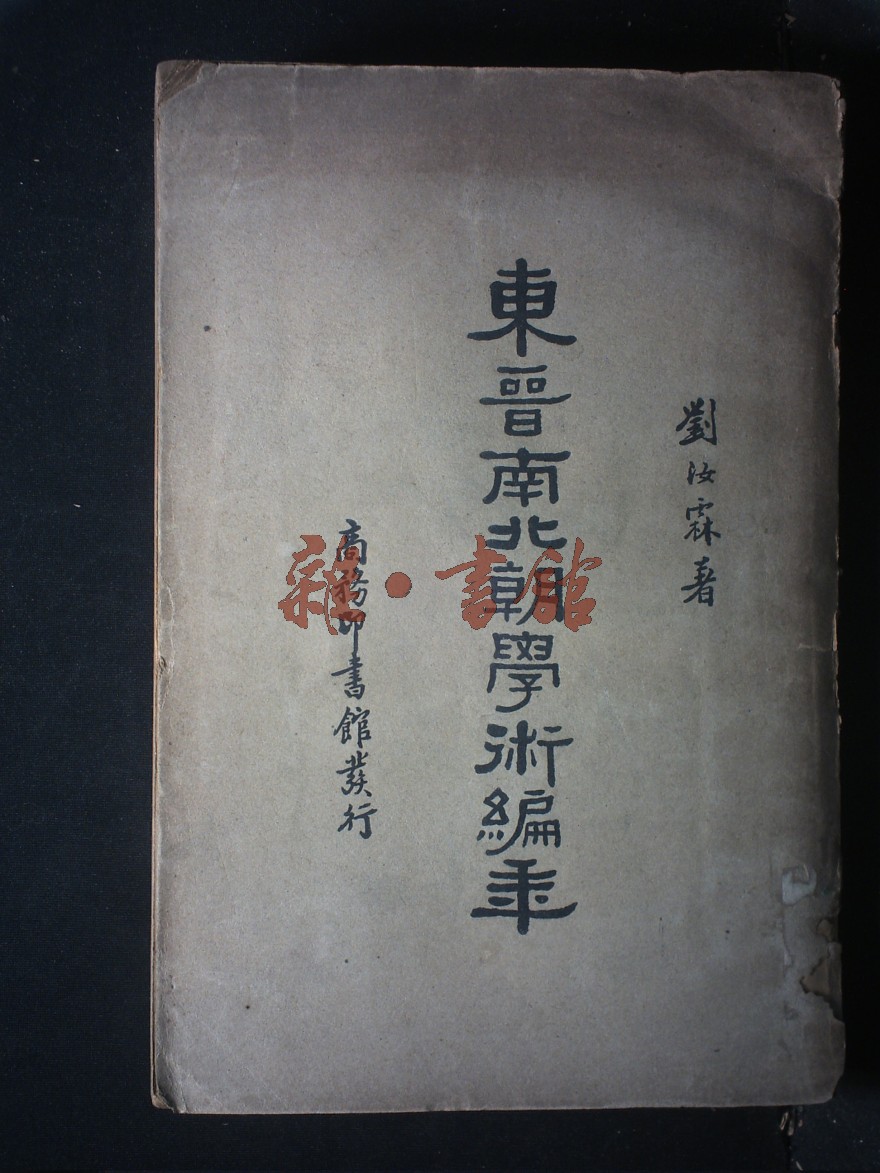 劉汝霖著
東晉南北朝學術編年
商務印書館發行
雜·書館